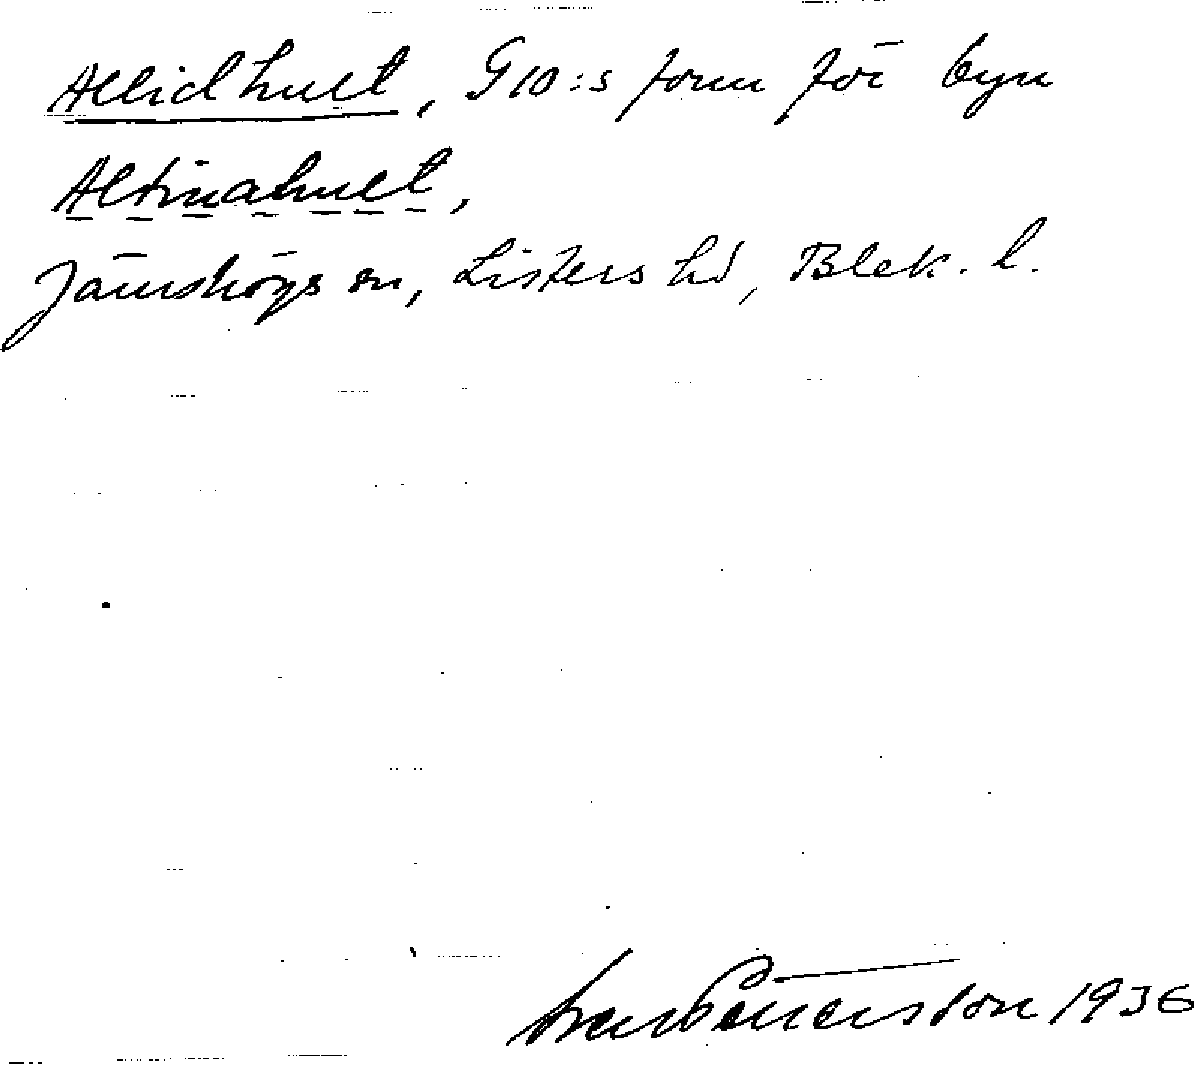 Allidhult, G10:s form för byn
Altinahult,
Jämshögs sn, Listers hd, Blek. l.
Sven Benson 1936